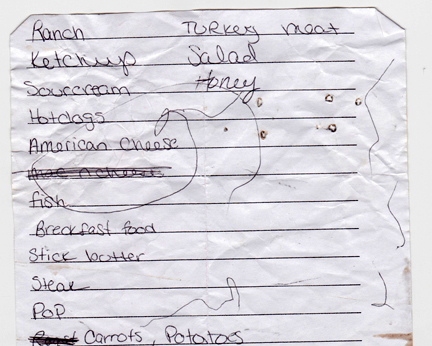 Ranch Turkey meat
Ketchup Salad
Sourcream Honey
Hotdogs
American Cheese
fish
Breakfast food
Stick butter
Steak
Pop
Carrots, Potatoes